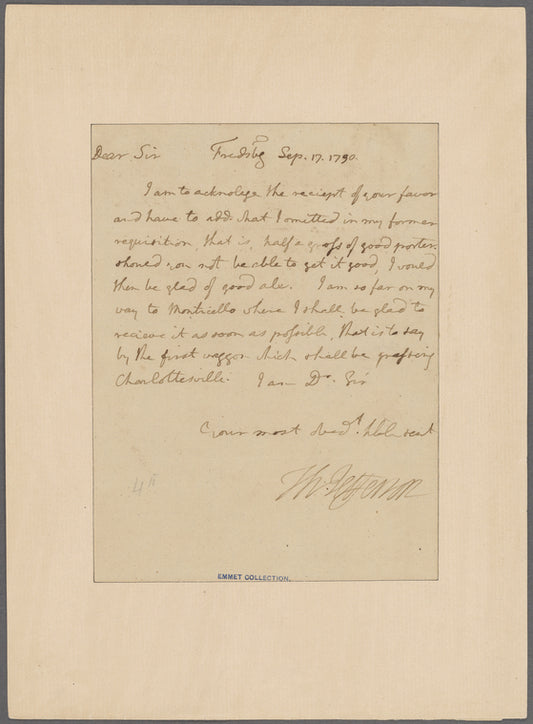 Dear Sir Fredsbg Sep. 17. 1790.
I am to acknolege the reciept of your favor
and have to add what I omitted in my former
requisition, that is, half a gross of good porter.
should you not be able to get it good, I would
then be glad of good ale. I am so far on my
way to Monticello where I shall be glad to
recieve it as soon as possible, that is to say
by the first waggon which shall be passing
Charlottesville. I am Dr. Sir
Your most obedt. hble servt
Th: Jefferson
EMMET COLLECTION.